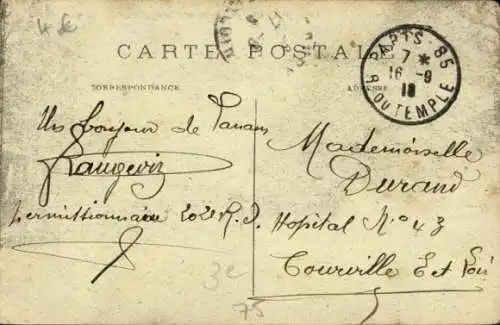 4 €
CARTE POSTALE
CORRESPONDANCE
ADRESSE
PARIS-85
7 *
16 -9
18
R DU TEMPLE
Un bonjour de
Permissionnaire 202e R. I.
Mademoiselle
Durand
Hopital N° 43
Courville Et Loir
3e
75